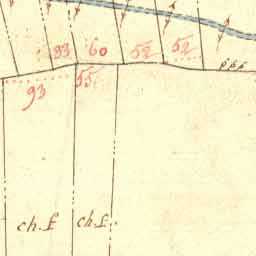 93 60 52 52
93 55
ch.f ch.f